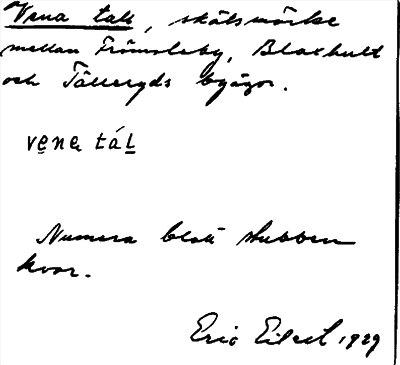 Vena tall, skälsmärke
mellan Främsteby, Blaxhult
och Tålleryds byägor.
vena tál
Numera blott stubben
kvar.
Eric 1929